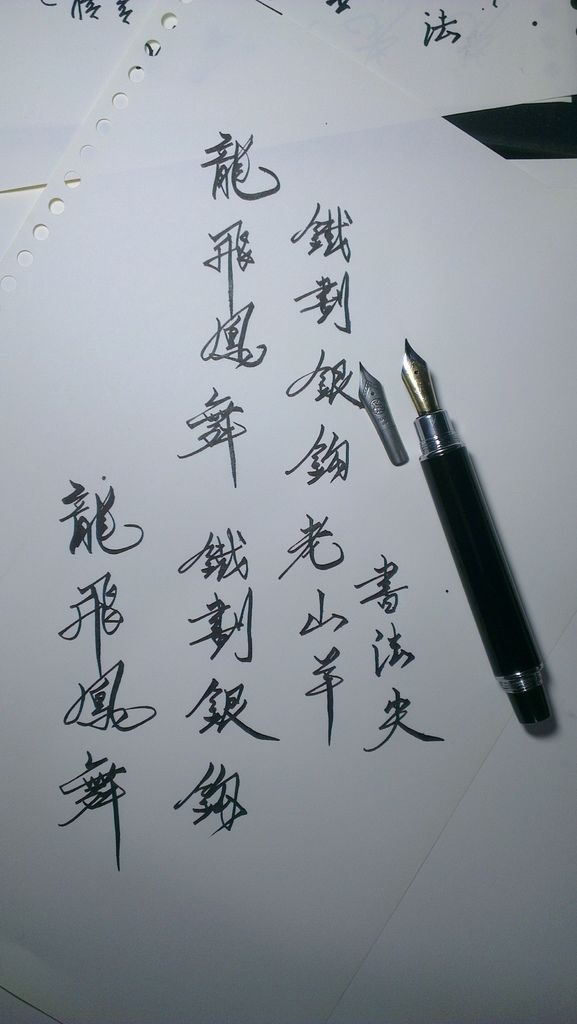 法
書法尖
鐵劃銀鉤老山羊
龍飛鳳舞鐵劃銀鉤
龍飛鳳舞